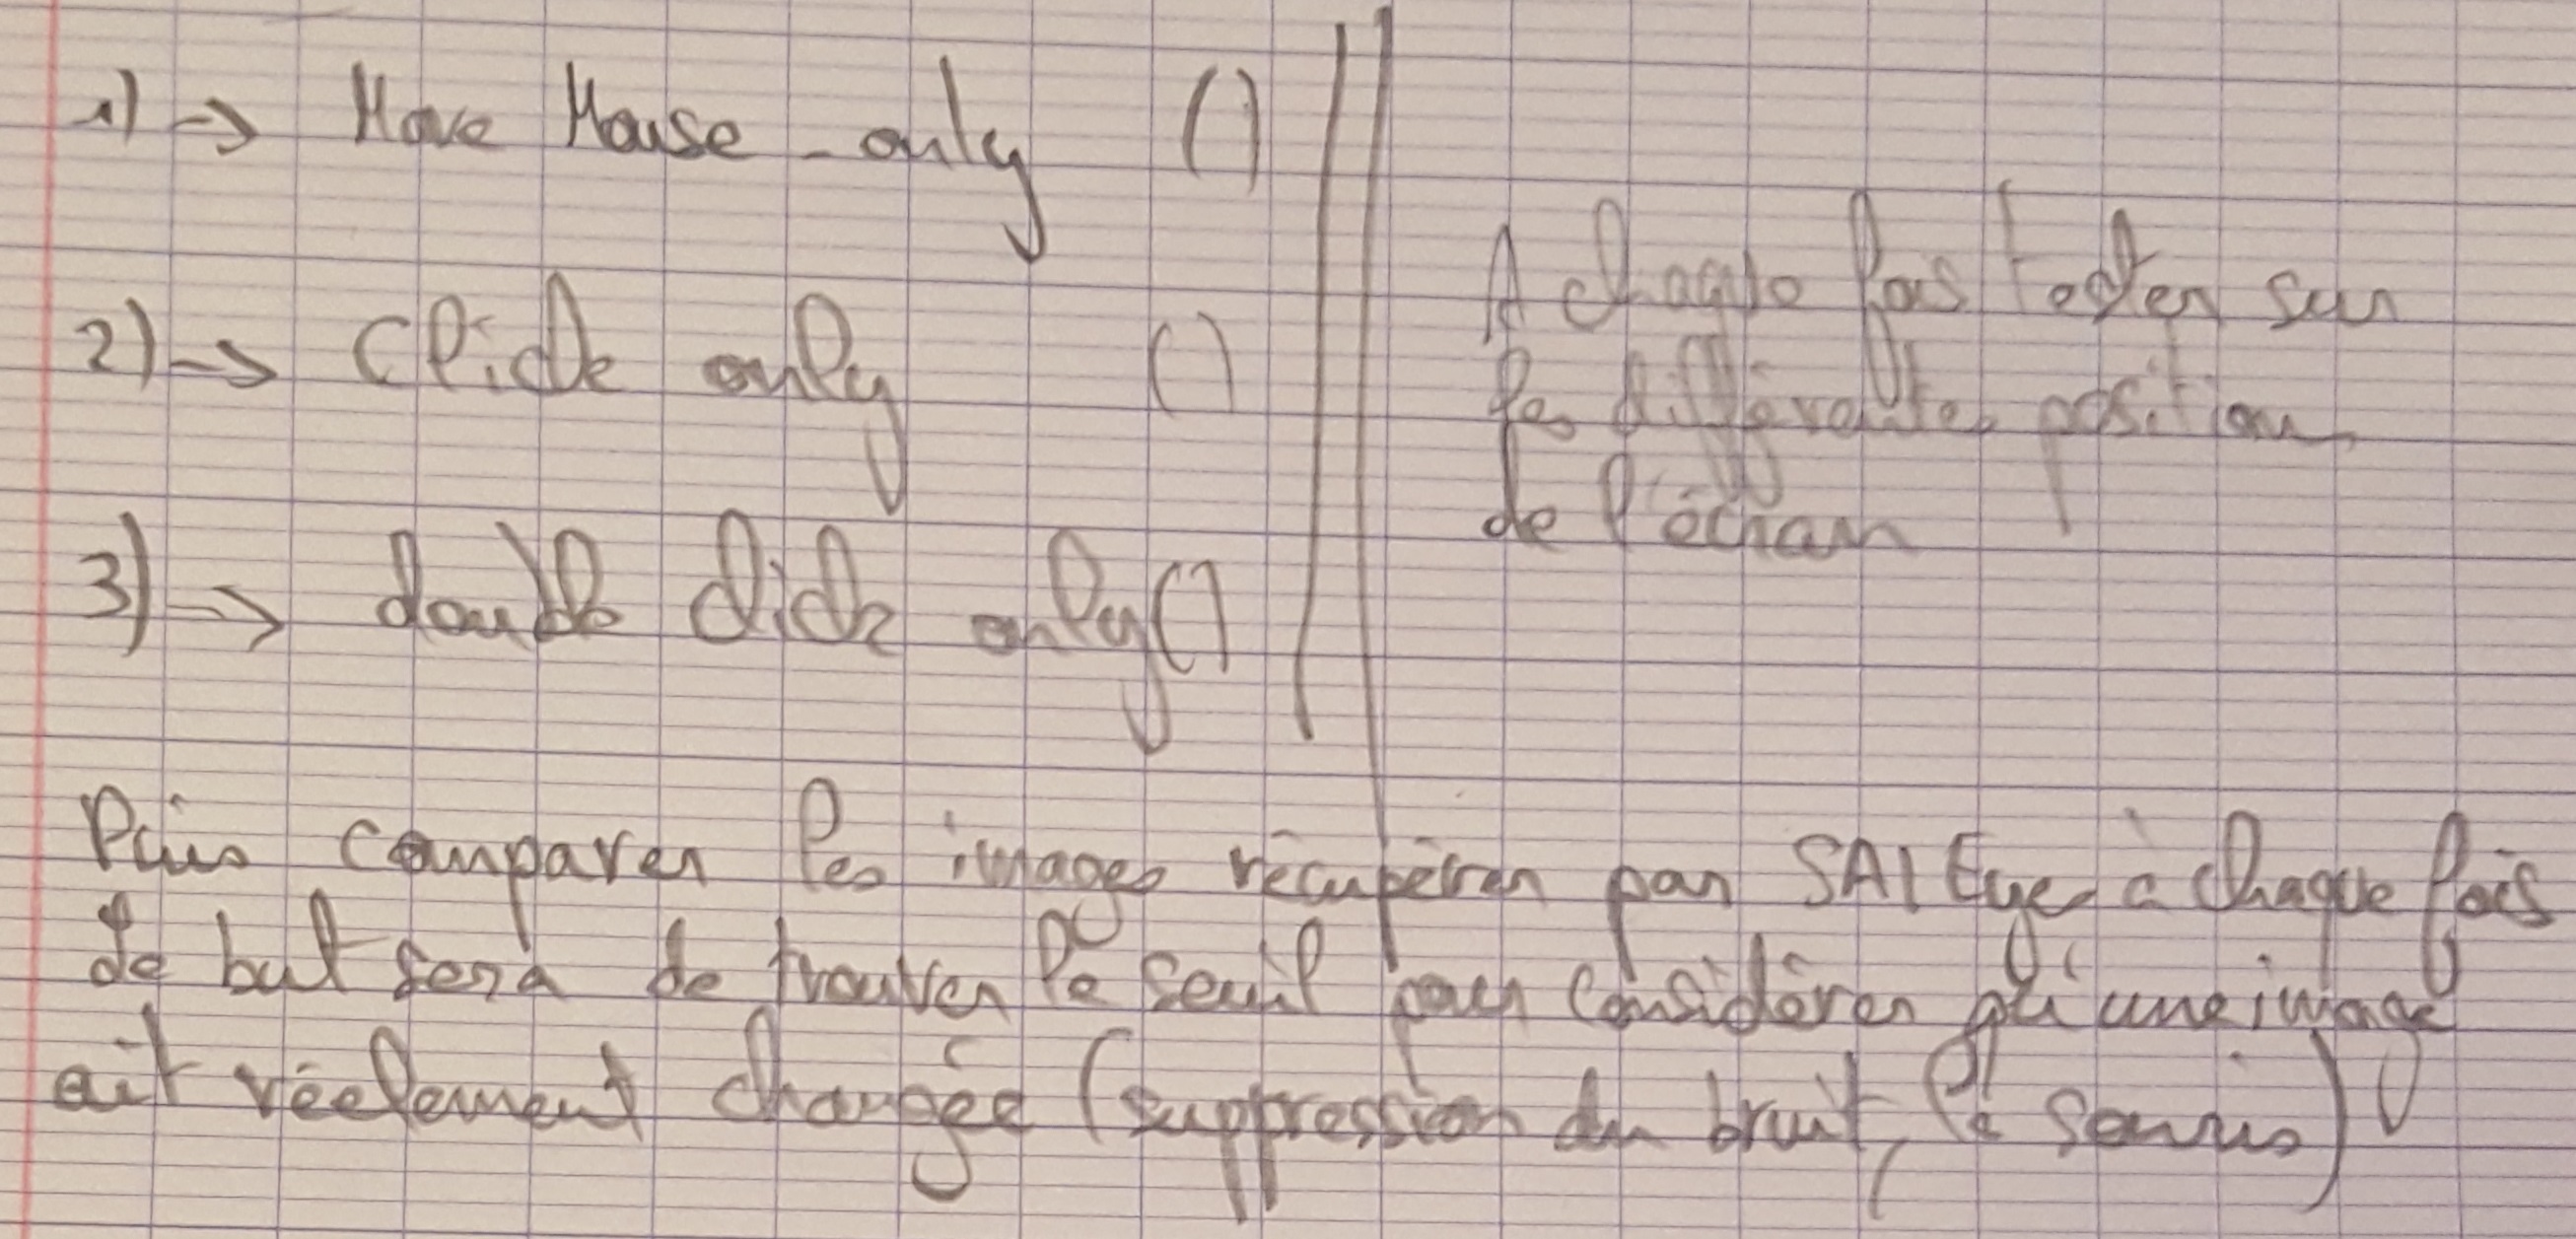 1) -> Move Mouse - only ()
2) -> Click only ()
3) -> double click only ()
A chaque fois tester sur
les différentes positions
de l'écran
Puis comparer les images récupérer par SAI Eyes à chaque fois
Le but sera de trouver le seuil pour considérer qu'une image
ait réelement changée (suppression du bruit, la souris)